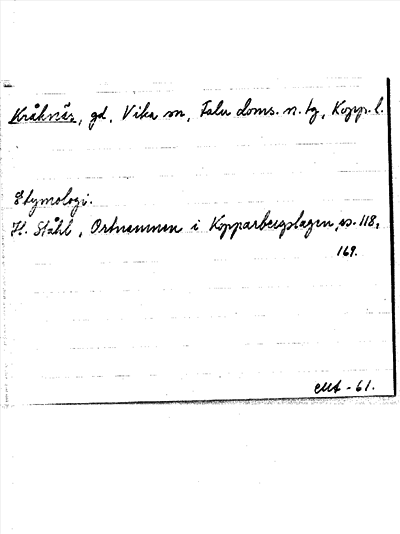 Kråknäs, gd, Vika sn, Falu doms. n. tg, Kopp. l.
Etymologi.
H. Ståhl, Ortnamnen i Kopparbergslagen, ss. 118,
169.
-61.